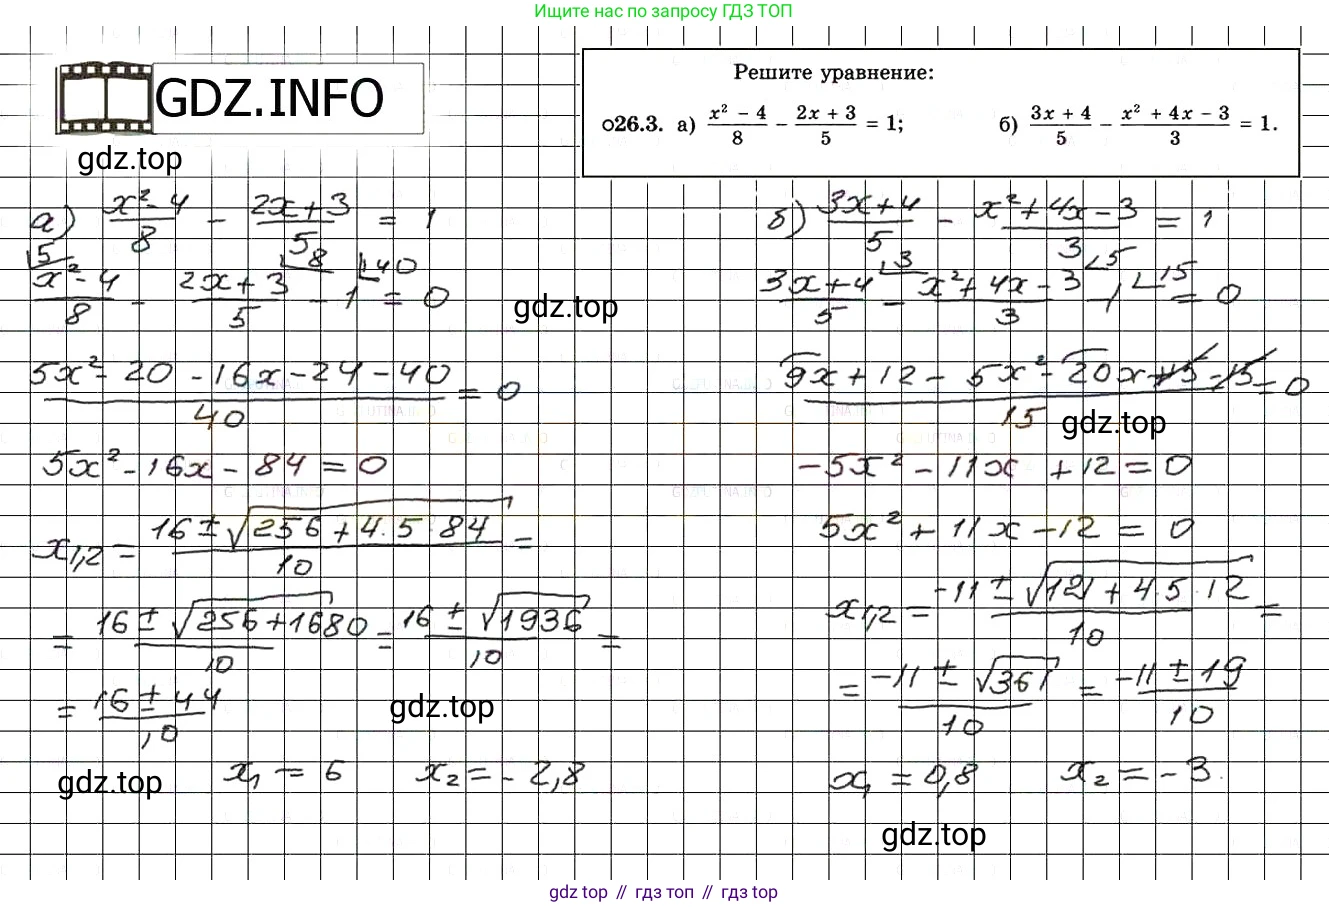 Ищите нас по запросу ГДЗ ТОП
GDZ.INFO
gdz.top
Решите уравнение:
о26.3. а) (x² - 4)/8 - (2x + 3)/5 = 1; б) (3x + 4)/5 - (x² + 4x - 3)/3 = 1.
а) (x² - 4)/8 - (2x + 3)/5 = 1
(x² - 4)/8 ⌊5 - (2x + 3)/5 ⌊8 - 1 ⌊40 = 0
gdz.top
(5x² - 20 - 16x - 24 - 40)/40 = 0
5x² - 16x - 84 = 0
x₁,₂ = (16 ± √(256 + 4·5·84))/10 =
= (16 ± √(256 + 1680))/10 = (16 ± √1936)/10 =
= (16 ± 44)/10
gdz.top
gdz.top
x₁ = 6 x₂ = -2,8
б) (3x + 4)/5 - (x² + 4x - 3)/3 = 1
(3x + 4)/5 ⌊3 - (x² + 4x - 3)/3 ⌊5 - 1 ⌊15 = 0
(9x + 12 - 5x² - 20x + 15 - 15)/15 = 0
gdz.top
-5x² - 11x + 12 = 0
5x² + 11x - 12 = 0
x₁,₂ = (-11 ± √(121 + 4·5·12))/10 =
= (-11 ± √361)/10 = (-11 ± 19)/10
x₁ = 0,8 x₂ = -3.
gdz.top
gdz top // гдз топ // гдз top